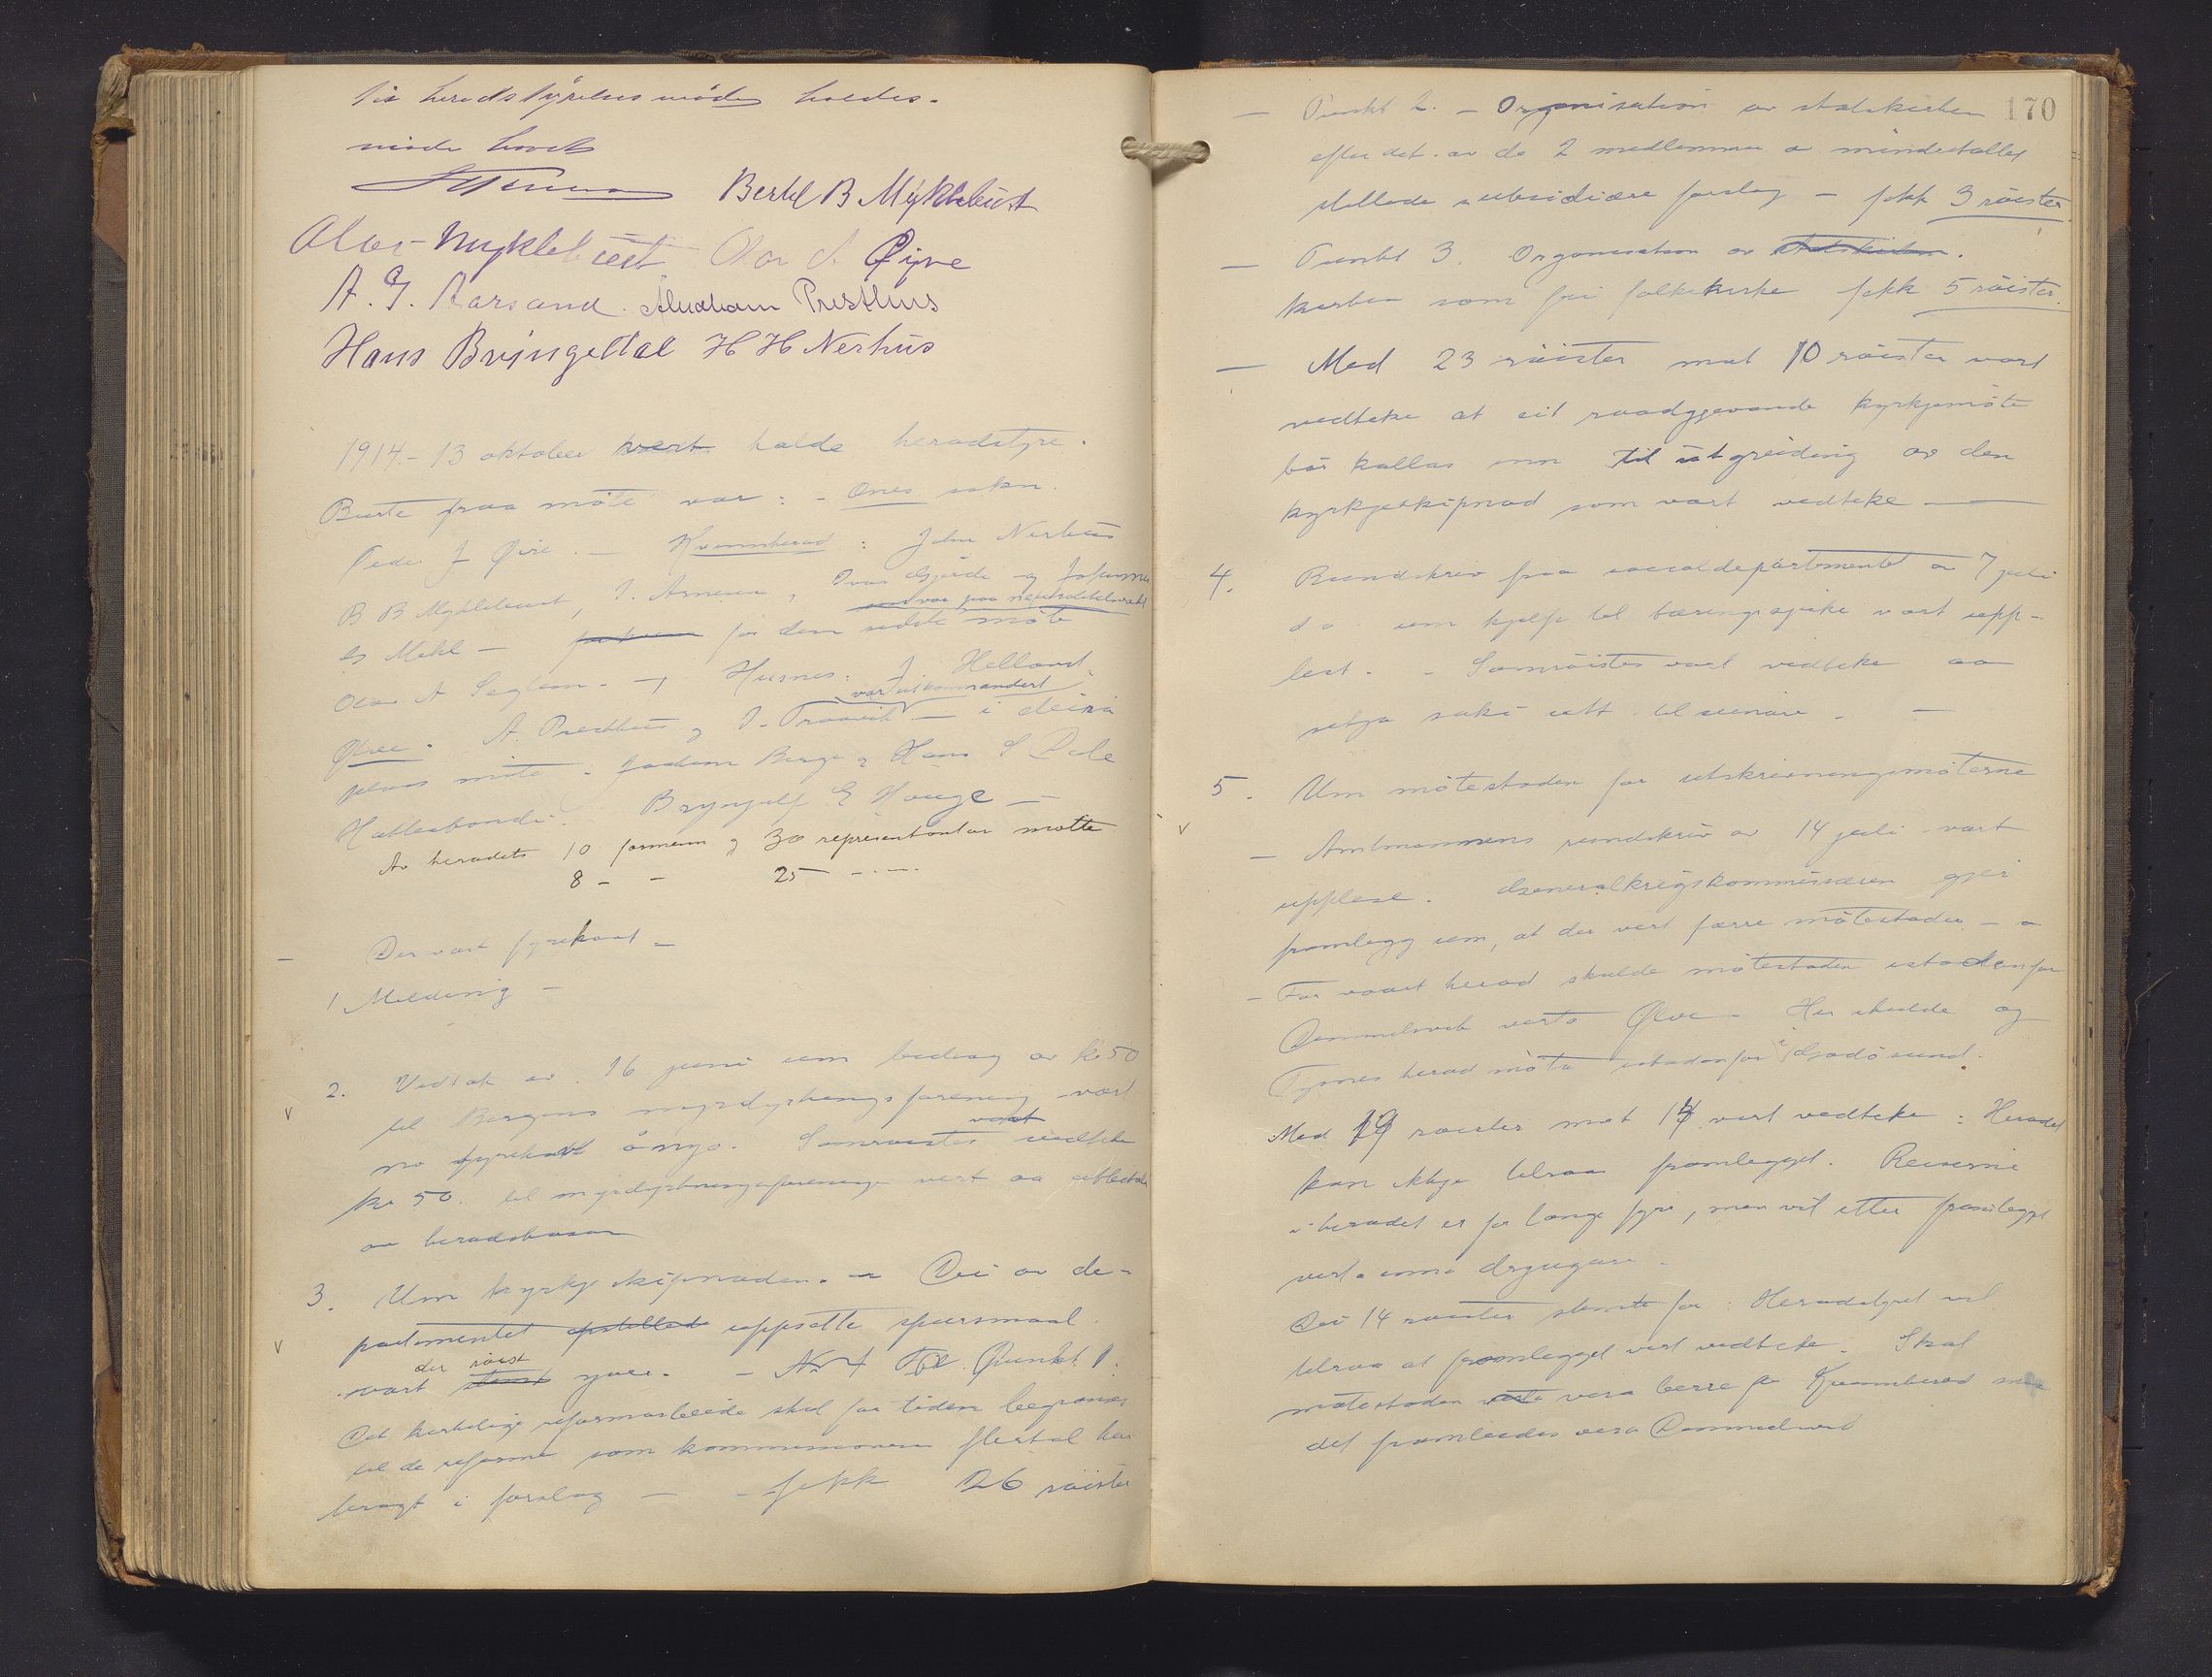 herredstyrelsesmöde holdes.
möde hævet
Bertel B Myklebust
Olav Myklebust Ola Øyre
A. G. Aarsand. Abraham Presthus
Hans Bringedal H H Nerhus
1914.- 13 oktober vart halde heradstyre.
Burte fraa möte var: - Ænes sokn.
Peder J Øire. - Kvinnherad: John Nerhus
B B Myklebust, I. Arnesen, Ivar Gjerde og Johannes
som var paa nøitralitetsvakt
es Mehl - for dem
Olav A Seglem. - Husnes: J. Helland
var utkommandert
Ølve. A. Presthus og I. Traavik - i deira
plass møtte: Joakim Berge og Hans S Dale
Hatlestrand: Brynjulf E Hauge -
Av heradets 10 formenn og 30 representantar møtte
8 - - 25 - . -
- Der vart fyrehavt -
1 Melding -
2. Vedtak av 16 juni um bidrag av kr 50
til Bergens myrdyrkningsforening vart
no fyrehavt ånyo. Samrøistes vart vedteke
kr 50. til myrdyrkningsforeninga vert aa utbetala
av heradskassa
3. Um kyrkjeskipnaden. - Dei av de-
partementet opstillede uppsette spursmaal
der röist
vart stemt yver. - No 4 Punkt 1.
Det kirkelige reformarbeide skal for tiden begrænses
til de reformer som kommissionens flertal har
bragt i forslag - - fekk 26 röister
170
- Punkt 2. - Organisation av statskirken
efter det av de 2 medlemmer av mindretallet
stillede subsidiære forslag - fekk 3 röister.
- Punkt 3. Organisation av statskirken.
kirken som fri folkekirke fekk 5 röister.
- Med 23 röister mot 10 röister vart
vedteke at eit raadgjevande kyrkjemöte
bör kallas inn til utgreiding av den
kyrkjeskipnad som vart vedteke -
4. Rundskriv fraa socialdepartementet av 7 juli
d a um hjelp til tæringssjuke vart upp-
lest. - Samröistes vart vedteke aa
setja saki utt til seinare. -
5. Um mötestaden for utskrivningsmöterne
- Amtmannens rundskriv av 14 juli vart
upplese. Generalkrigskommissæren gjer
framlegg um, at der vert færre mötestader - a
- For vaart herad skulde mötestaden istadenfor
Dimmelsvik verta Ølve. Her skulde og
Tysnes herad möta istadenfor i Godösund.
Med 19 röister mot 14 vart vedteke: Heradet
kan ikkje tilraa framlegget. Reiserne
i heradet er for lange fyre, men vil etter framlegget
verta enno drjugare.
Dei 14 röister stemte for: Heradstyret vil
tilraa at framlegget vert vedteke. Skal
mötestaden verta vera berre for Kvinnherad maa
det framleides vera Dimmelsvik